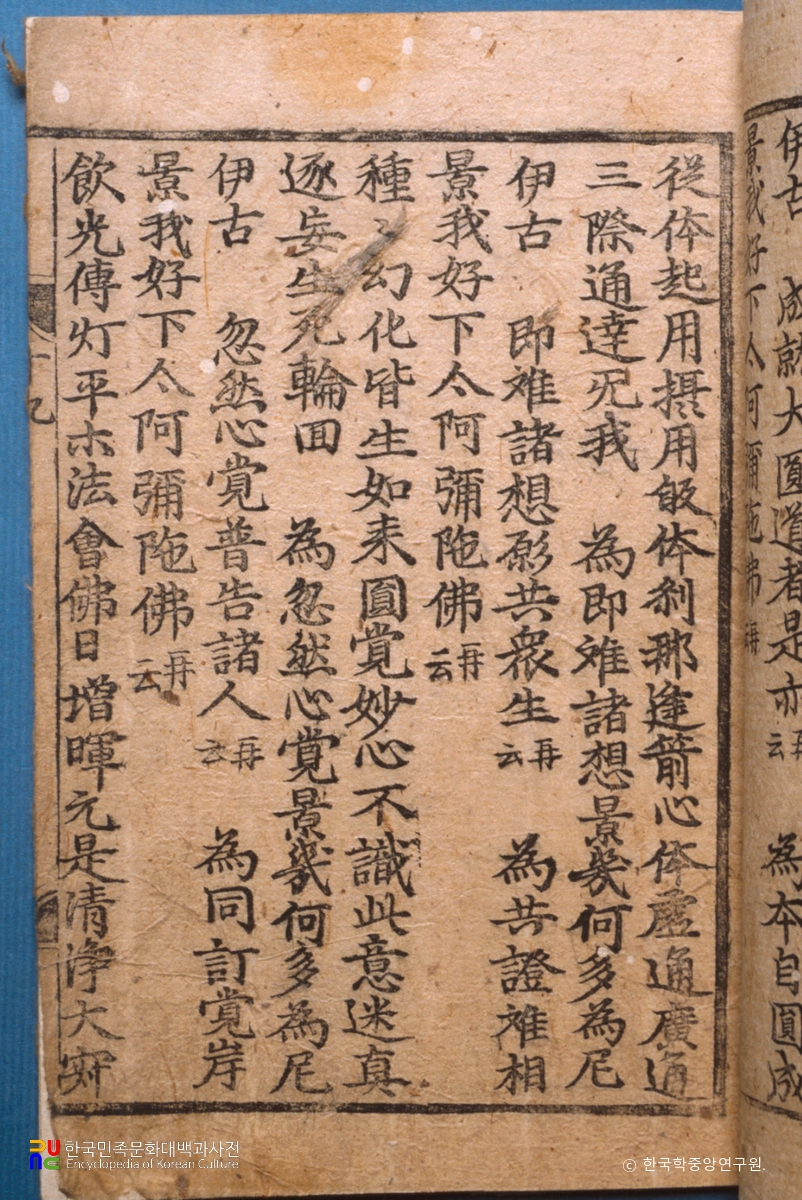 伊古 成就大圓道者是亦再云 為本自圓成
景我好下亽阿彌陁佛再云
從体起用摂用皈体刹那逢箭心体虛通廣通
三際通達旡我 為即離諸想景幾何多為尼
伊古 即離諸想影共衆生再云 為共證離相
景我好下亽阿彌陁佛再云
種〻幻化皆生如来圓覚妙心不識此意迷真
逐妄生死輪回 為忽然心覚景幾何多為尼
伊古 忽然心覚普告諸人再云 為同訂覚岸
景我好下亽阿彌陁佛再云
飲光傳灯平朩法會佛日增暉元是清淨大
한국민족문화대백과사전
Encyclopedia of Korean Culture
© 한국학중앙연구원.